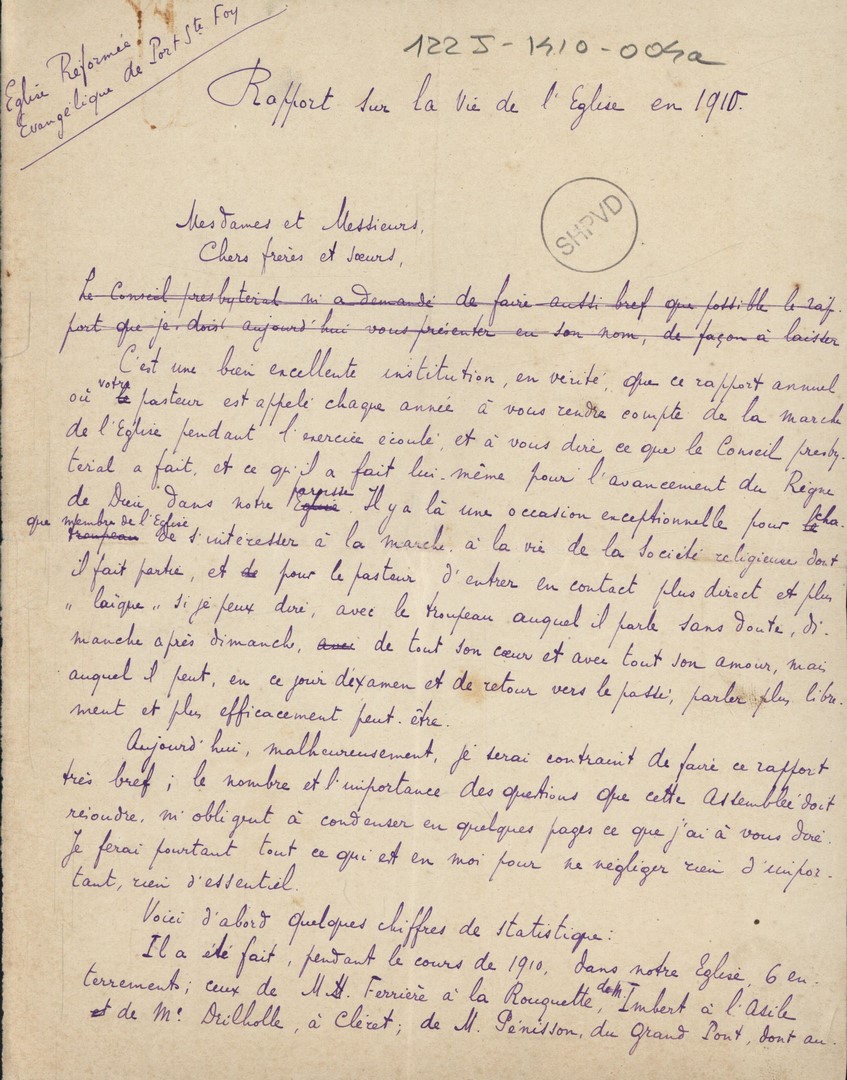 Eglise Réformée
Evangélique de Port Ste Foy
122 J - 1910 - 004a
Rapport sur la Vie de l'Eglise en 1910.
SHPVD
Mesdames et Messieurs,
Chers frères et sœurs,
Le Conseil presbyteral m'a demandé de faire aussi bref que possible le rap-
port que je dois aujourd'hui vous présenter en son nom, de façon à laisser
C'est une bien excellente institution, en vérité, que ce rapport annuel
où le votre pasteur est appelé chaque année à vous rendre compte de la marche
de l'Eglise pendant l'exercice écoulé, et à vous dire ce que le Conseil presby-
téral a fait, et ce qu'il a fait lui-même pour l'avancement du Règne
de Dieu dans notre Eglise paroisse. Il y a là une occasion exceptionnelle pour le cha-
que troupeau membre de l'Eglise de s'intéresser à la marche, à la vie de la Société religieuse dont
il fait partie, et de pour le pasteur d'entrer en contact plus direct et plus
"laïque" si je peux dire, avec le troupeau auquel il parle sans doute, di-
manche après dimanche, avec de tout son cœur et avec tout son amour, mais
auquel il peut, en ce jour d'examen et de retour vers le passé, parler plus libre-
ment et plus efficacement peut-être.
Aujourd'hui, malheureusement, je serai contraint de faire ce rapport
très bref; le nombre et l'importance des questions que cette Assemblée doit
résoudre, m'obligent à condenser en quelques pages ce que j'ai à vous dire.
Je ferai pourtant tout ce qui est en moi pour ne négliger rien d'impor-
tant, rien d'essentiel.
Voici d'abord quelques chiffres de statistique:
Il a été fait, pendant le cours de 1910, dans notre Eglise, 6 en-
terrements; ceux de M. Ferrière à la Rouquette, de M. Imbert à l'Asile
et de Me Dreilholle, à Cléret; de M. Pénisson, du Grand Pont, dont au-